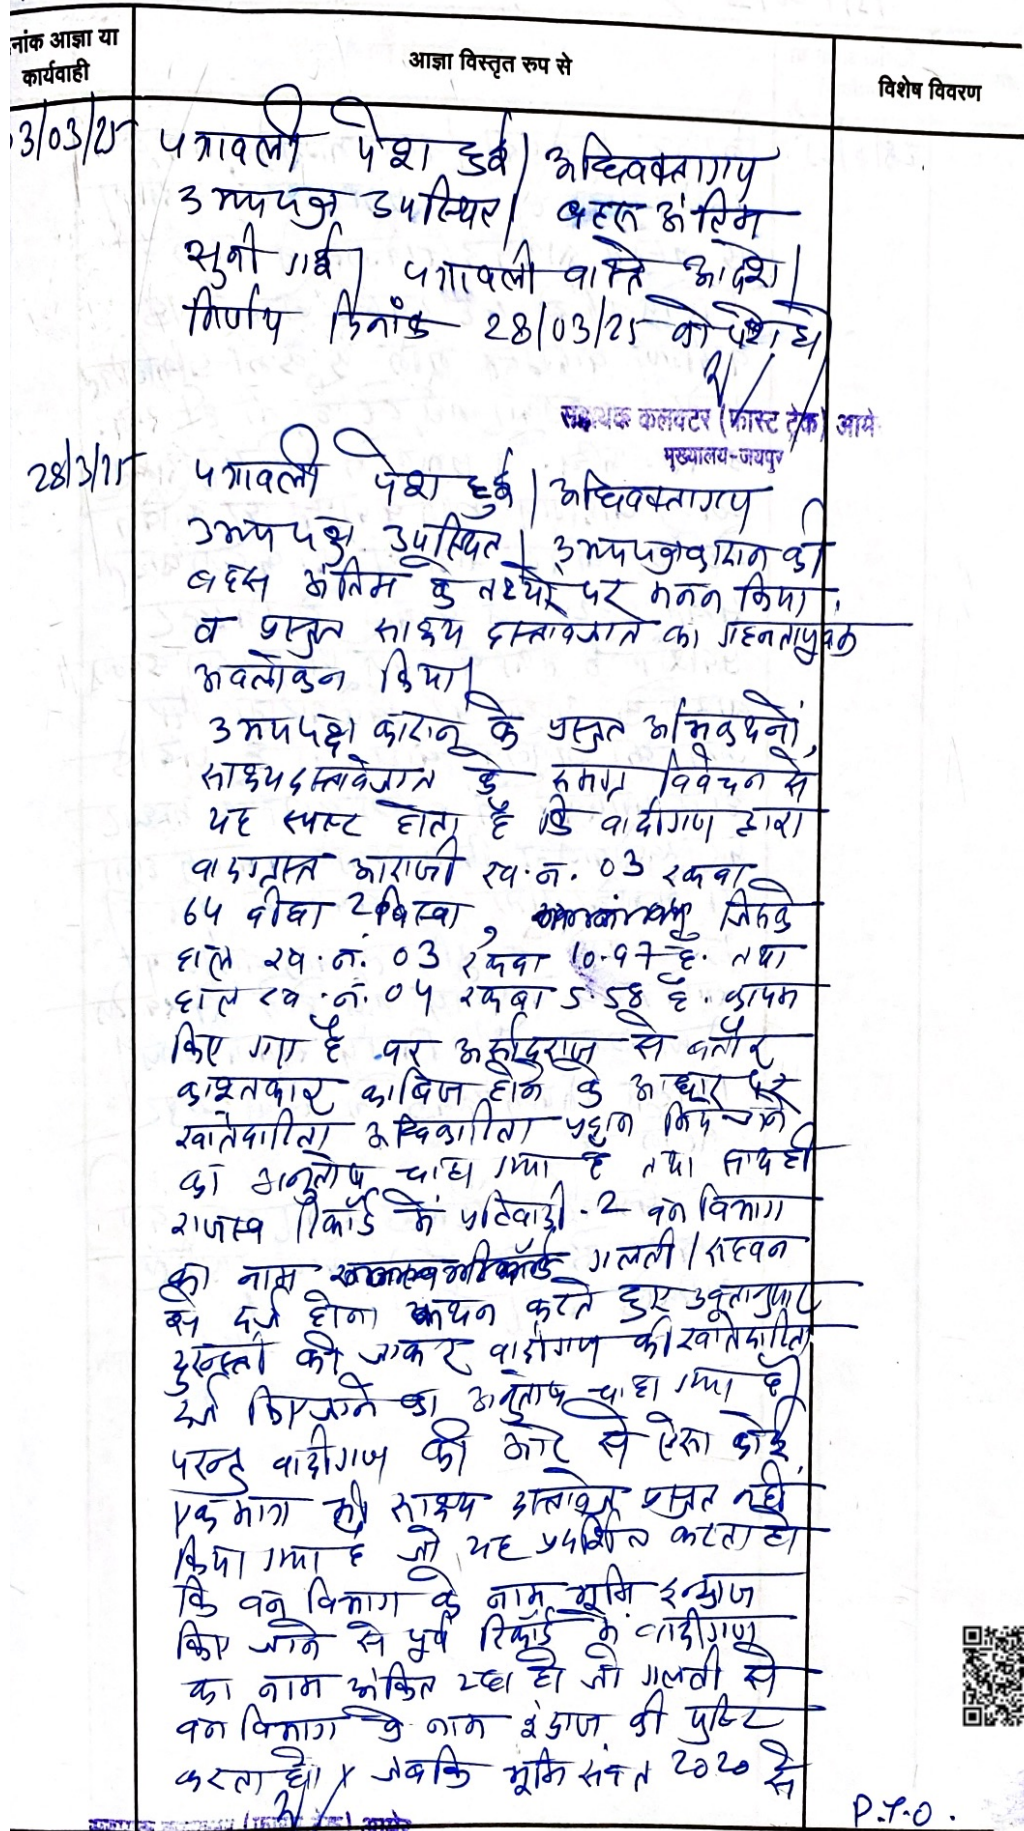 नांक आज्ञा या
कार्यवाही
आज्ञा विस्तृत रुप से
विशेष विवरण
3/03/25
पत्रावली पेश हुई। अधिवक्तागण
उभयपक्ष उपस्थित। बहस अंतिम
सुनी गई। पत्रावली वास्ते आदेश/
निर्णय दिनांक 28/03/25 को पेश हो
सहायक कलक्टर (फास्ट ट्रेक) आमेर
मुख्यालय-जयपुर
28/3/25
पत्रावली पेश हुई। अधिवक्तागण
उभयपक्ष उपस्थित। उभयपक्षकारान की
बहस अंतिम के तथ्यों पर मनन किया
व प्रस्तुत साक्ष्य दस्तावेजात का गहनतापूर्वक
अवलोकन किया।
उभयपक्ष कारान के प्रस्तुत अभिकथनों,
साक्ष्य दस्तावेजात के समग्र विवेचन से
यह स्पष्ट होता है कि वादीगण द्वारा
वादग्रस्त आराजी ख.नं. 03 रकबा
64 बीघा 2 बिस्वा, जिसके
हाल ख.नं. 03 रकबा 10.97 है. तथा
हाल ख.नं. 04 रकबा 5.58 है. कायम
किए गए है पर अर्सादराज से बतौर
काश्तकार काबिज होने के आधार पर
खातेदारिता अधिकारिता प्रदान किये जाने
का अनुतोष चाहा गया है तथा साथ ही
राजस्व रिकॉर्ड में प्रतिवादी-2 वन विभाग
का नाम गलती/सहवन
से दर्ज होना कथन करते हुए उक्तानुसार
दुरुस्ती की जाकर वादीगण की खातेदारिता
दर्ज किए जाने का अनुतोष चाहा गया है।
परन्तु वादीगण की ओर से ऐसा कोई
एकमात्र भी साक्ष्य दस्तावेज प्रस्तुत नहीं
किया गया है जो यह प्रदर्शित करता हो
कि वन विभाग के नाम भूमि इन्द्राज
किए जाने से पूर्व रिकॉर्ड में वादीगण
का नाम अंकित रहा हो जो गलती से
वन विभाग के नाम इंद्राज की पुष्टि
करता हो। जबकि भूमि संवत 2020 से
P.T.O.